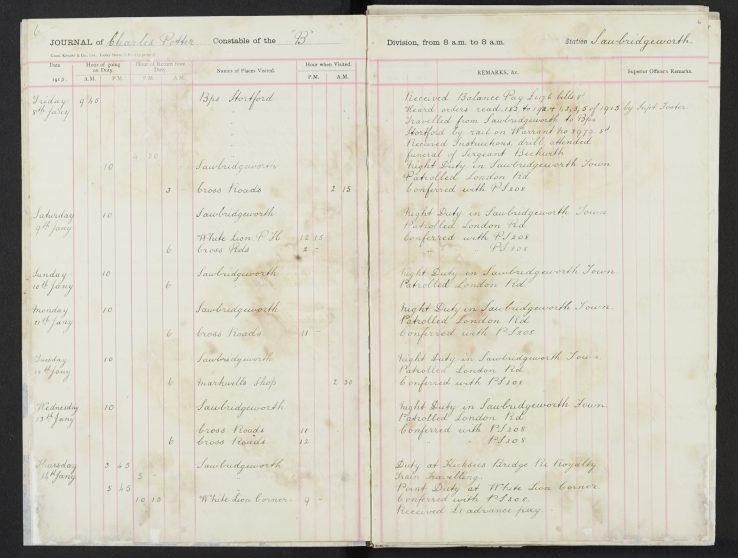 6
JOURNAL of Charles Potter Constable of the "B" Division, from 8 a.m. to 8 a.m. Station Sawbridgeworth.
Date Hour of going on Duty. Hour of Return from Duty Names of Places Visited. Hour when Visited. REMARKS, &c. Superior Officer's Remarks.
A.M. P.M. P.M. A.M. P.M. A.M.
Friday 9 45 Bps Stortford Received Balance Pay
8th Jany Heard orders read 1, 2, 3, 5 of 1915 by Supt Foster
Travelled from Sawbridgeworth to Bps
Stortford by rail on Warrant no
Received Instructions, drill, attended
funeral of Sergeant Beckwith
10 Sawbridgeworth Night Duty in Sawbridgeworth Town
Patrolled London Rd
3 Cross Roads 2 15 Conferred with PS 208
Saturday 10 Sawbridgeworth Night Duty in Sawbridgeworth Town
9th Jany Patrolled London Rd
White Lion P.H 12 15 Conferred with PS 208
6 Cross Rds 2 - " " PS 208
Sunday 10 Sawbridgeworth Night Duty in Sawbridgeworth Town
10th Jany 6 Patrolled London Rd
Monday 10 Sawbridgeworth Night Duty in Sawbridgeworth Town.
11th Jany Patrolled London Rd
6 Cross Roads 11 - Conferred with PS 208
Tuesday 10 Sawbridgeworth Night Duty in Sawbridgeworth Town
Jany Patrolled London Rd
6 Markwells Shop 2 30 Conferred with PS 208
Wednesday 10 Sawbridgeworth Night Duty in Sawbridgeworth Town.
13th Jany Patrolled London Rd
Cross Roads 11 Conferred with PS 208
6 Cross Roads 12 " " PS 208
Thursday 3 45 Sawbridgeworth Duty at Bridge Re Royalty
14th Jany 5 - Train Travelling.
5 45 Point Duty at White Lion Corner
10 15 White Lion Corner. 9 - Conferred with PS 208.
Received advance pay